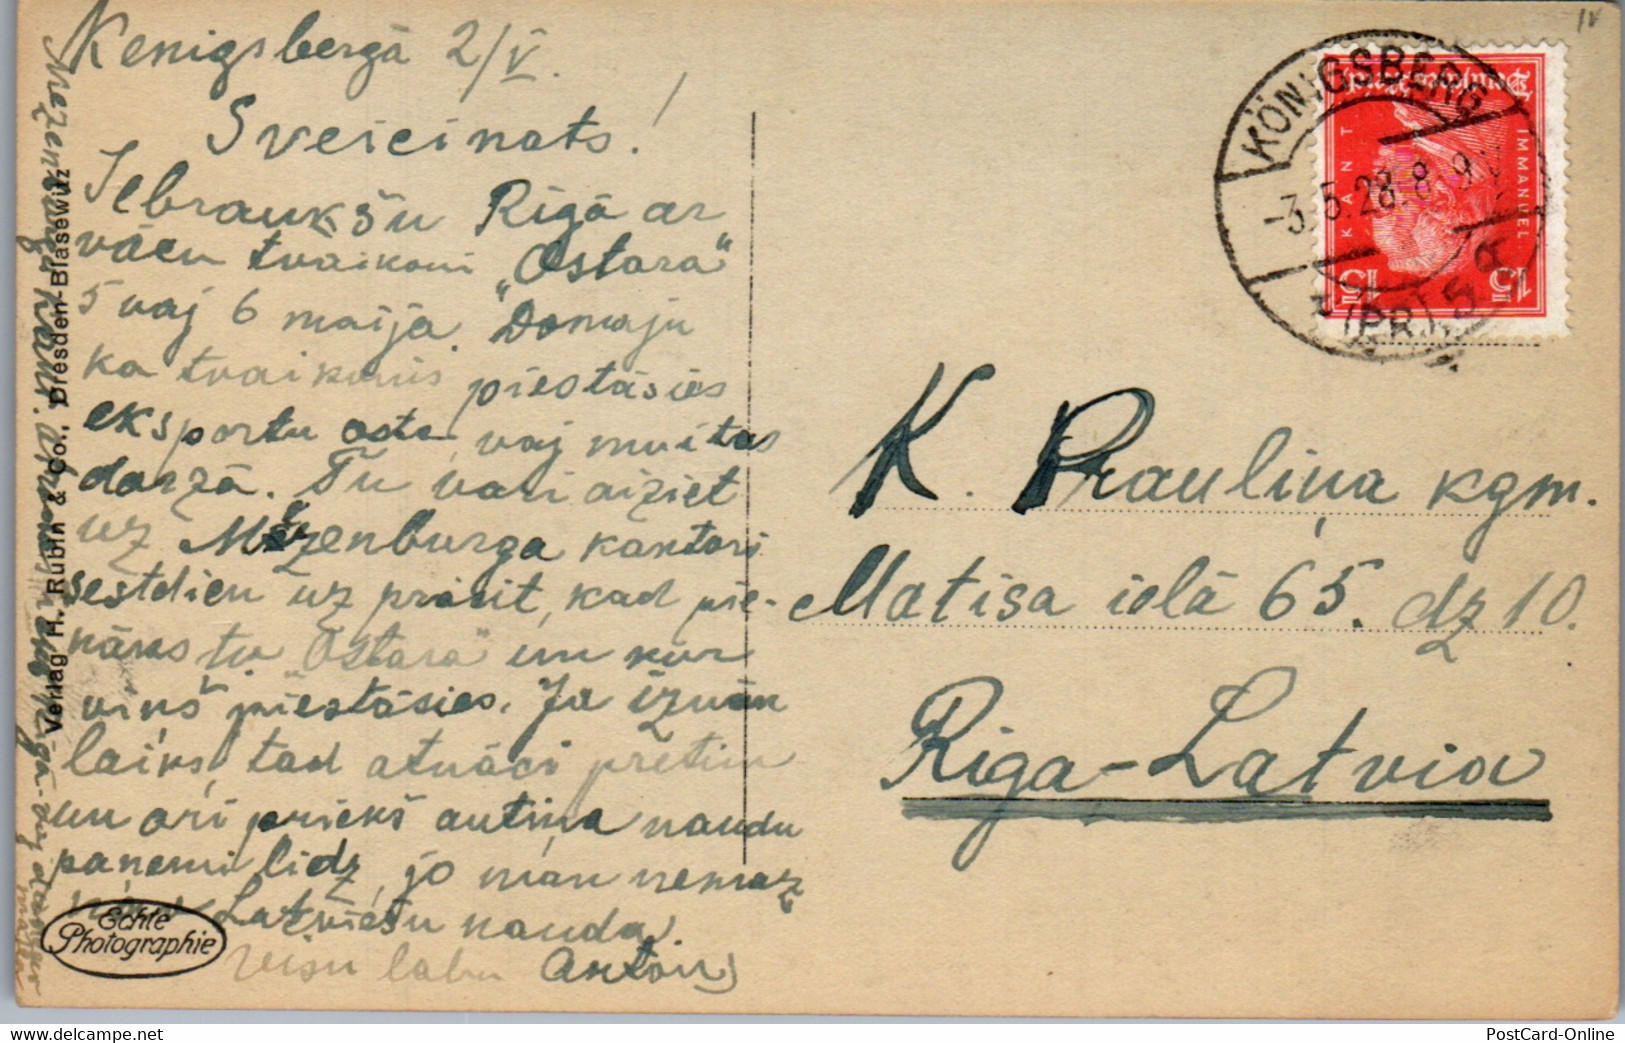 Kenigsbergā 2/V.
Sveicinats!
Iebraukšu Rīgā ar
vācu tvaikoni „Ostara"
5 vaj 6 maijā. Domaju
ka tvaikonis piestāsies
eksportu osta vaj muitas
dārzā. Tu vari aiziet
uz Mizenburga kantori
sestdien uz prasit, kad pie-
nāks tv „Ostara" un kur
viņš piestāsies. Ja iznāk
laiks, tad atnāci pretim
un ari prieks autiņa naudu
panemi lidz, jo man nemaz
nav Latviešu nauda.
Visu labu Antons
Verlag H. Rubin & Co., Dresden-Blasewitz
Echte
Photographie
KÖNIGSBERG
-3.5.28.8-9V
(PR) 5
Deutsches Reich
IMMANUEL KANT
15 15
K. Prauliņa kgm.
Matisa ielā 65. dz 10.
Riga-Latvia
IV
www.delcampe.net
PostCard-Online